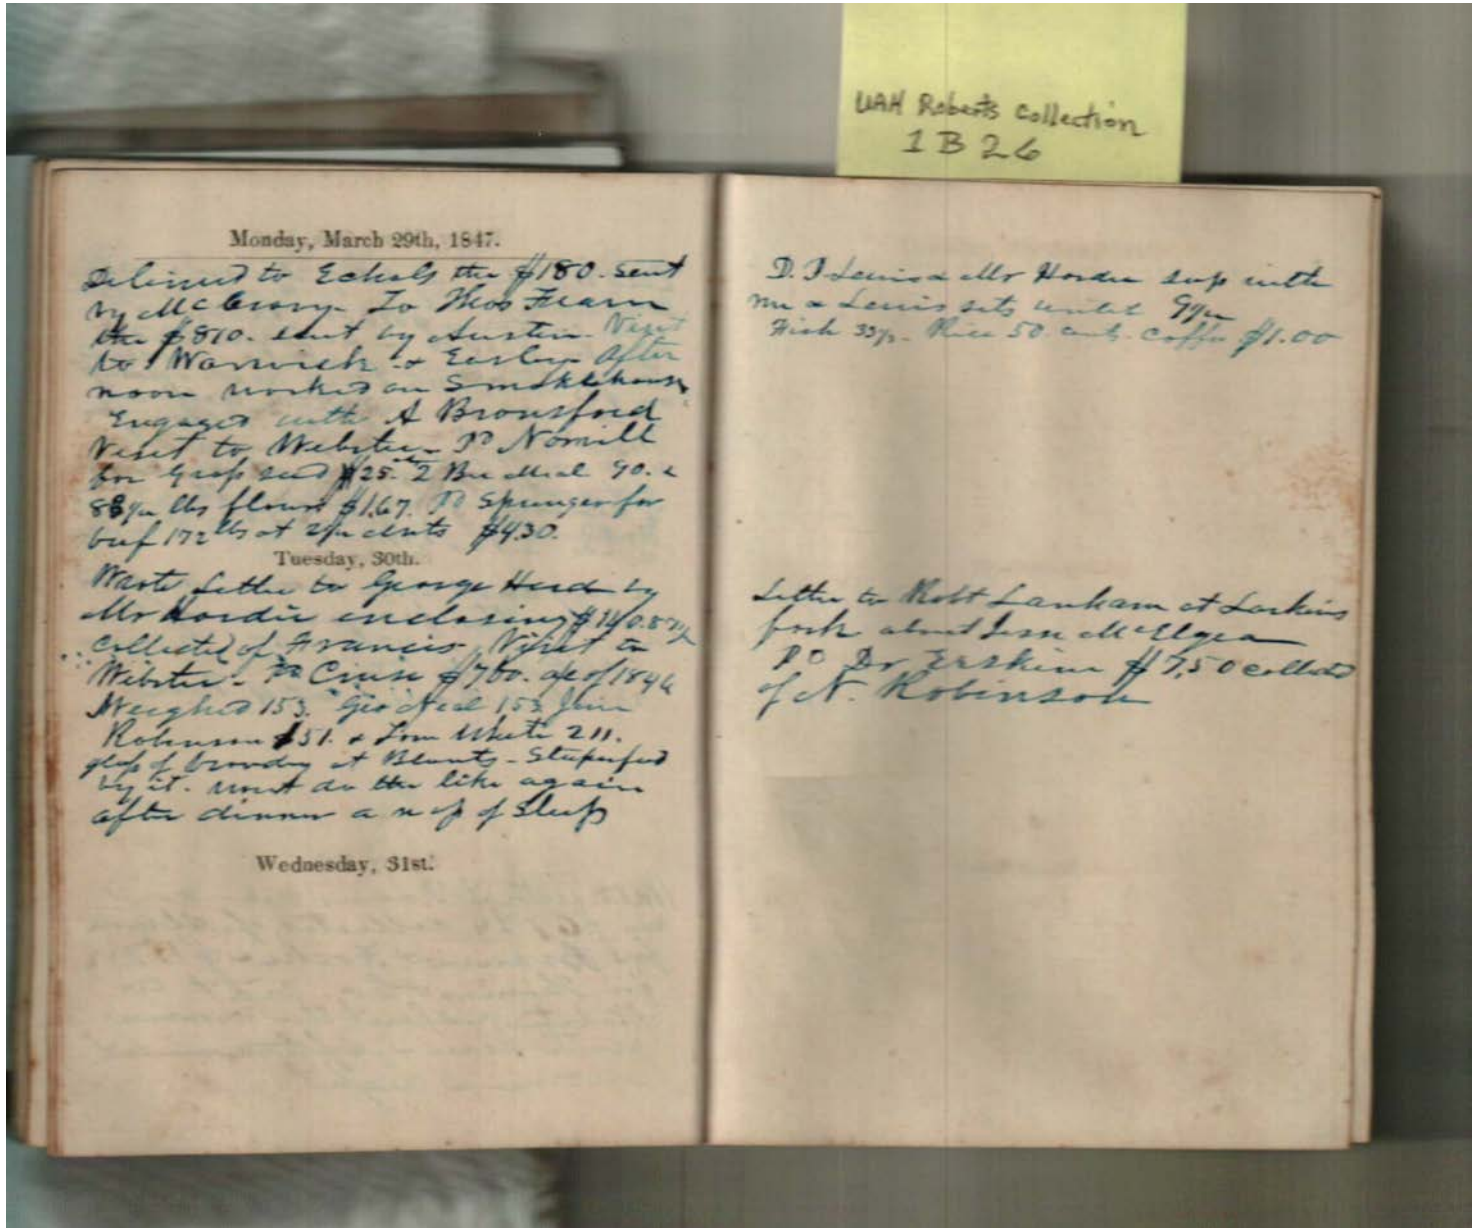 UAH Roberts Collection
1 B 26
Monday, March 29th, 1847.
Delivered to Echols the $180. sent
by McCrary To Thos Fearn
the $810. sent by Austin Visit
to Warwick & Easley After
noon worked on Smokehouse
Engaged with A
Visit to Webster Pd
for Grass seed $25. 2 Bu Meal 90. &
lbs flour $1.67. Pd Springer for
beef 172 lbs at cents $4.30.
Tuesday, 30th.
Wrote Letter to George Heard by
Mr Hardie enclosing
collected of Francis Visit to
Webster Pd Cruse of 184
Weighed 153. Geo Neal 153
Robinson 151. & Tom White 211.
glass of brandy at Blunts - Stupefied
by it. wont do the like again
after dinner a nap of sleep
Wednesday, 31st.
D. P Lewis & Mr Hardie sup with
me & Lewis sits until
Fish Rice 50 cents. Coffee $1.00
Letter to Robt Lanham at Larkins
fork about Jesse McElyea
Pd Dr Erskine $7,50 collected
of N. Robinson